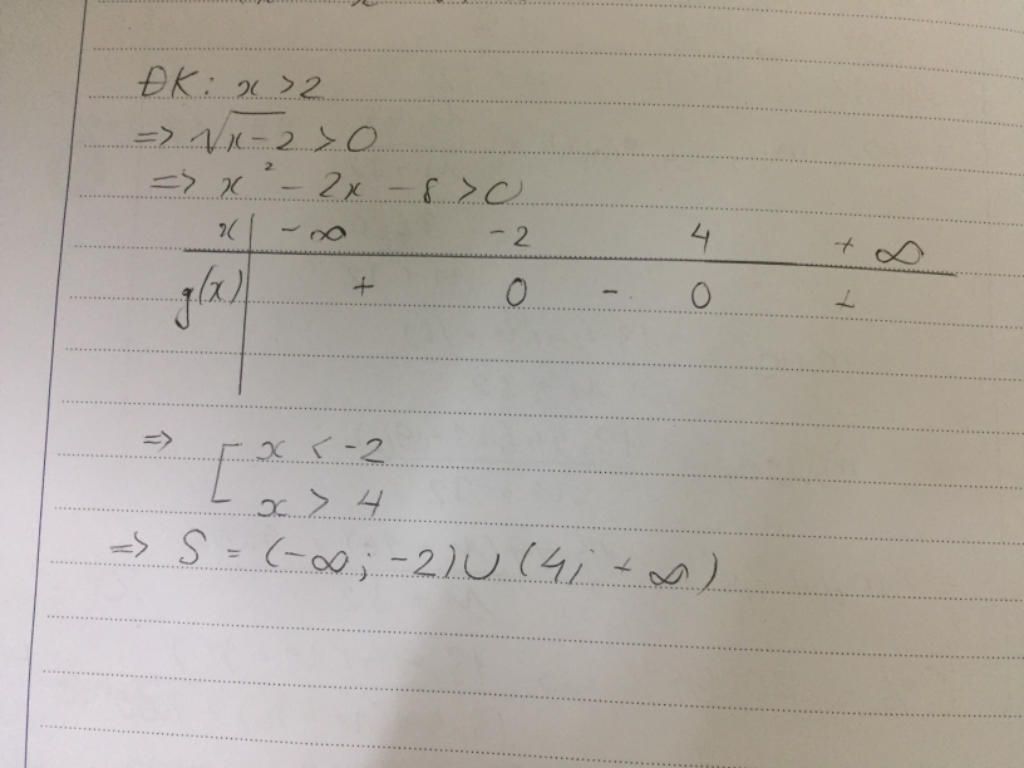 ĐK: x > 2
=> √x-2 > 0
=> x² - 2x - 8 > 0
x | -∞ -2 4 +∞
g(x) | + 0 - 0 +
=> [ x < -2
x > 4
=> S = (-∞; -2) ∪ (4; +∞)